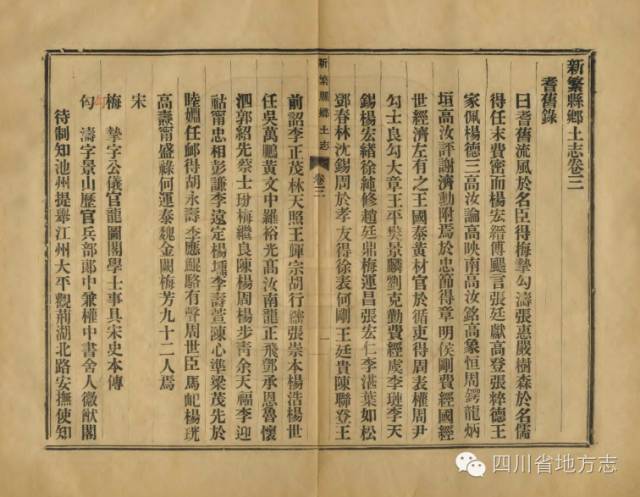 新繁縣鄉土志卷三
耆舊錄
曰耆舊流風於名臣得梅摯勾濤張惠嚴樹森於名儒
得任末費密而楊宏縉傅颺言張廷獻高登張粹德王
家佩楊德三高汝論高映南高汝銘高象恒周鍔龍炳
垣高汝評謝濟勳附焉於忠節得章明侯剛費經國經
世經濟左有之王國泰黃材官於循吏得周表權周尹
勾士良勾大章王平吳景麟劉克勤費經虞李璉李天
錫楊宏緒徐純修趙廷鼎梅運昌張宏仁李湛葉如松
鄧春林沈錫周於孝友得徐表何剛王廷貴陳聯登王
新繁縣鄉土志 卷三 一
前詔李正茂林天照王暉宗胡行譓張崇本楊浩楊世
任吳萬鵬黃文中羅裕光高汝南龍正飛鄧承恩魯懷
泗郭紹先蔡士玢梅繼良陳楊周楊步青余天福李迎
祜甯忠相彭謙李遠定楊壎李壽萱陳心準梁茂先於
睦婣任卹得胡永壽李應鯤駱有聲周世臣馬屺楊珖
高壽甯盛祿何運泰魏金闕梅芳九十二人焉
宋
梅摯字公儀官龍圖閣學士事具宋史本傳
勾濤字景山歷官兵部郎中兼權中書舍人徽猷閣
待制知池州提舉江州太平觀荊湖北路安撫使知
四川省地方志